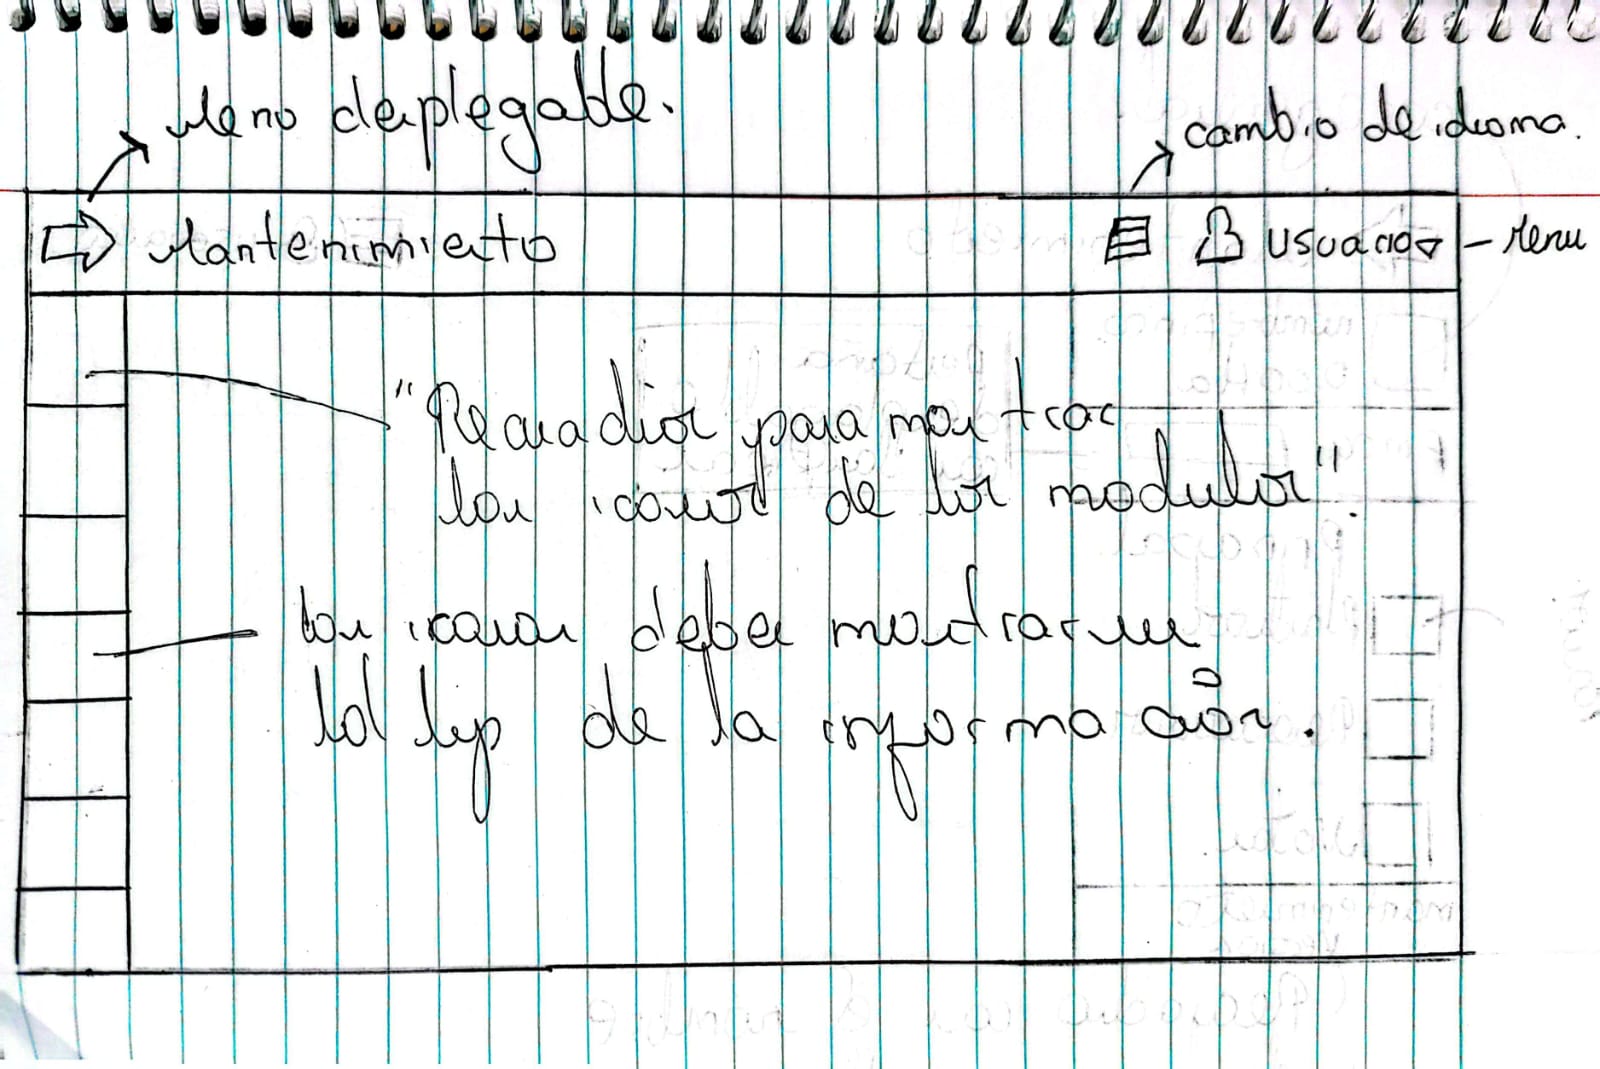 Menu desplegable.
cambio de idioma.
Mantenimiento
usuarios - Menu
"Recuadros para mostrar
los iconos de los modulos".
los iconos debes mostrar un
tol tip de la información.